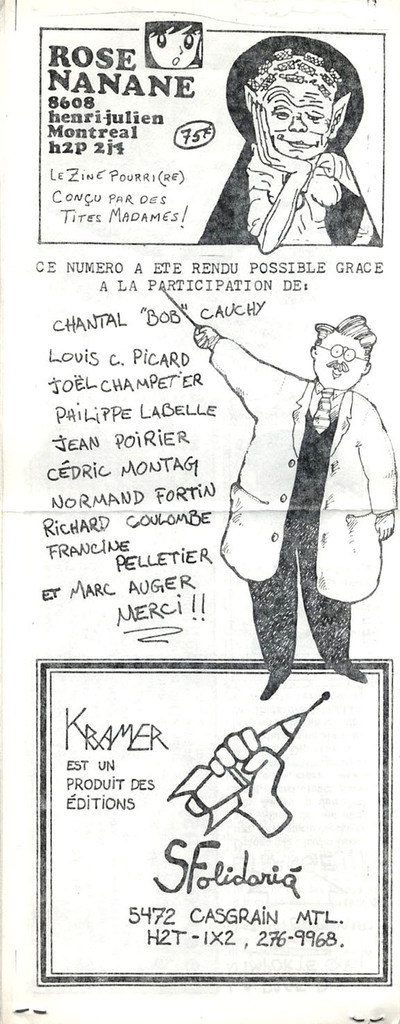 ROSE
NANANE
8608
henri-julien
Montreal
h2P 2j4
75¢
LE ZINE POURRI(RE)
CONÇU PAR DES
TITES MADAMES!
CE NUMERO A ETE RENDU POSSIBLE GRACE
A LA PARTICIPATION DE:
CHANTAL "BOB" CAUCHY
LOUIS C. PICARD
JOËL CHAMPETIER
PHILIPPE LABELLE
JEAN POIRIER
CÉDRIC MONTAG
NORMAND FORTIN
RICHARD COULOMBE
FRANCINE
PELLETIER
ET MARC AUGER
MERCI!!
KRAMER
EST UN
PRODUIT DES
ÉDITIONS
SFolidarié
5472 CASGRAIN MTL.
H2T-1X2, 276-9968.